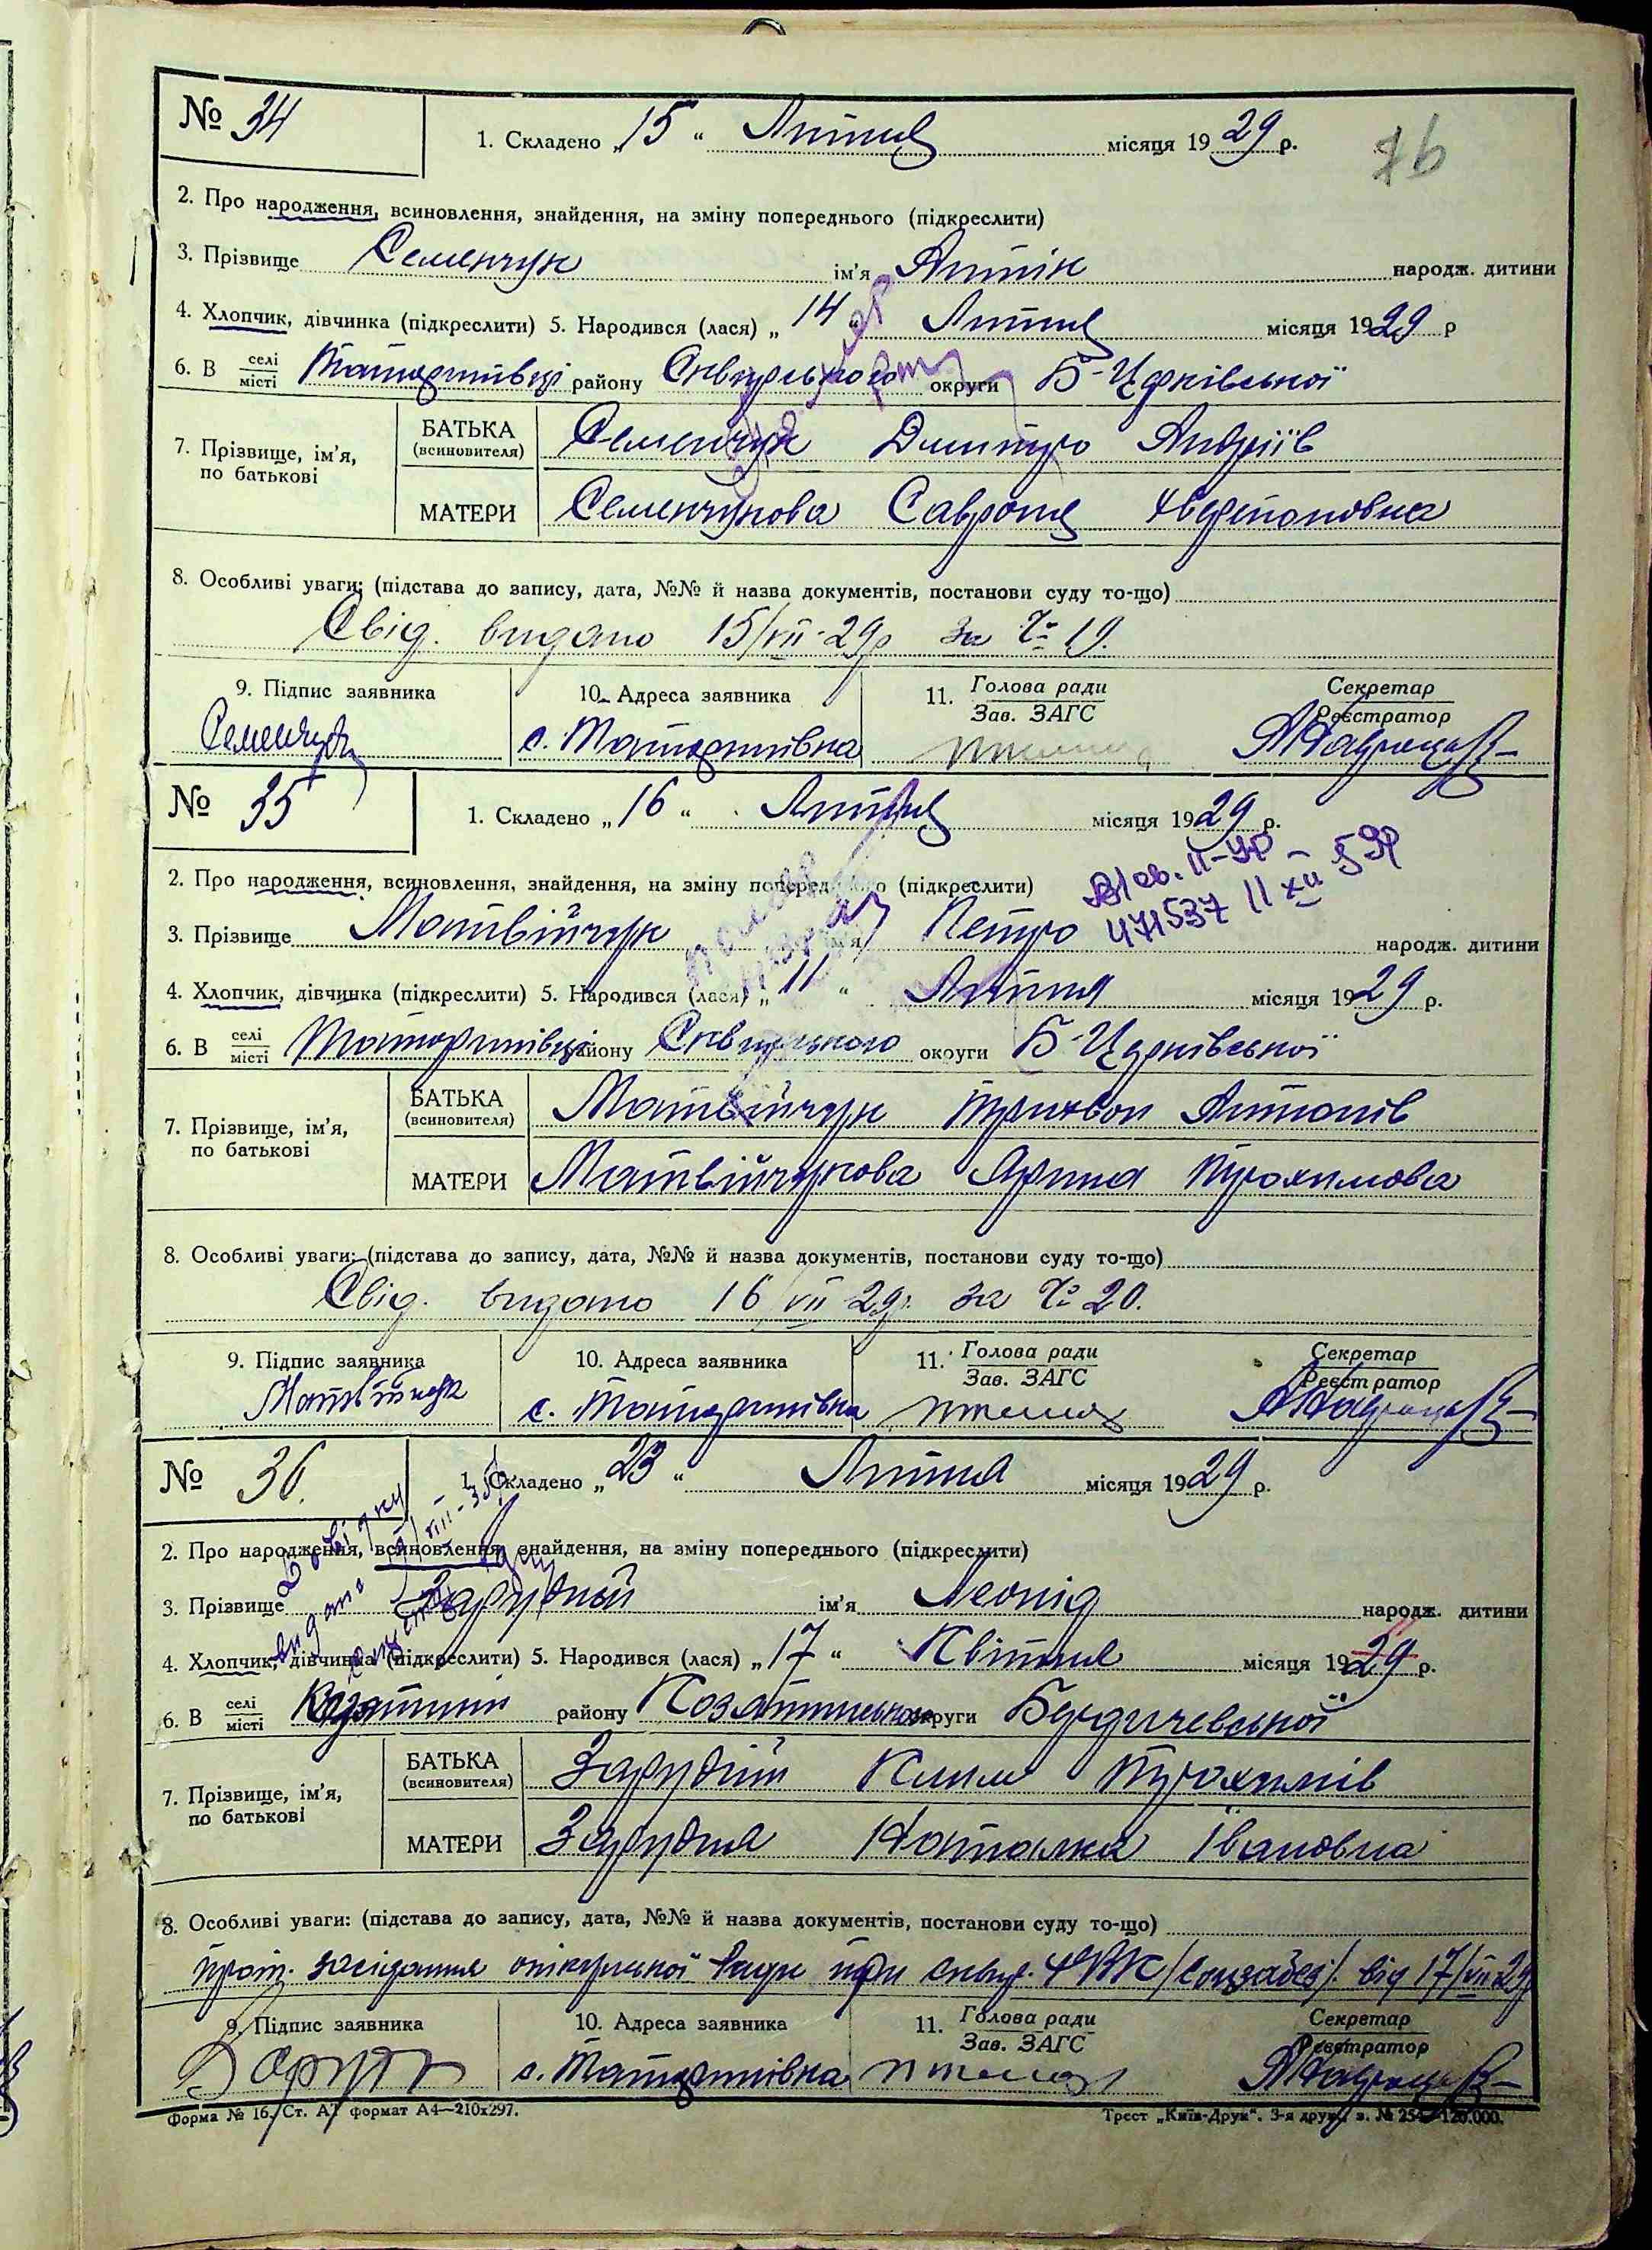 № 34
1. Складено „15“ Липня місяця 1929 р.
76
2. Про народження, всиновлення, знайдення, на зміну попереднього (підкреслити)
3. Прізвище Семенчук ім'я Антін народж. дитини
4. Хлопчик, дівчинка (підкреслити) 5. Народився (лася) „14“ Липня місяця 1929 р
6. В селі/місті Татаринівці району Сквирського округи Б-Церківської
7. Прізвище, ім'я, по батькові
БАТЬКА (всиновителя) Семенчук Дмитро Андріїв
МАТЕРИ Семенчукова Савроня
8. Особливі уваги: (підстава до запису, дата, №№ й назва документів, постанови суду то-що)
Свід. видано 15/VII-29р за № 19.
9. Підпис заявника 10. Адреса заявника 11. Голова ради/Зав. ЗАГС Секретар/Реєстратор
Семенчук с. Татаринівка
№ 35
1. Складено „16“ Липня місяця 1929 р.
2. Про народження, всиновлення, знайдення, на зміну попереднього (підкреслити)
471537 11 XII 59р
3. Прізвище Матвійчук ім'я Петро народж. дитини
4. Хлопчик, дівчинка (підкреслити) 5. Народився (лася) „11“ Липня місяця 1929 р.
6. В селі/місті Татаринівці району Сквирського округи Б-Церківської
7. Прізвище, ім'я, по батькові
БАТЬКА (всиновителя) Матвійчук Трихвон Антонів
МАТЕРИ Матвійчукова Ярина Трохимова
8. Особливі уваги: (підстава до запису, дата, №№ й назва документів, постанови суду то-що)
Свід. видано 16/VII 29р. за № 20.
9. Підпис заявника 10. Адреса заявника 11. Голова ради/Зав. ЗАГС Секретар/Реєстратор
Матвійчук с. Татаринівка
№ 36.
1. Складено „23“ Липня місяця 1929 р.
2. Про народження, всиновлення, знайдення, на зміну попереднього (підкреслити)
3. Прізвище Зарудный ім'я Леонід народж. дитини
4. Хлопчик, дівчинка (підкреслити) 5. Народився (лася) „17“ Квітня місяця 1929 р.
6. В селі/місті Козятині району Козятинського округи Бердичевської
7. Прізвище, ім'я, по батькові
БАТЬКА (всиновителя) Зарудній Клим Трохимів
МАТЕРИ Зарудня Наталка Івановна
8. Особливі уваги: (підстава до запису, дата, №№ й назва документів, постанови суду то-що)
прот. засідання опікунської Ради при сквир. РВК/Соцзабез/. від 17/VII 29р
9. Підпис заявника 10. Адреса заявника 11. Голова ради/Зав. ЗАГС Секретар/Реєстратор
с. Татаринівка
Форма № 16. Ст. А7 формат А4—210х297. Трест „Київ-Друк“. 3-я друк. з. № 254—120.000.